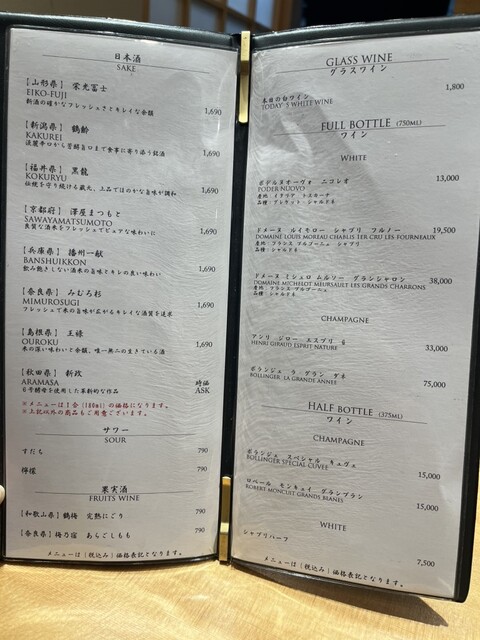 日本酒
SAKE
【山形県】 栄光冨士
EIKO-FUJI
新酒の確かなフレッシュさとキレイな余韻
1,690
【新潟県】 鶴齢
KAKUREI
淡麗辛口から芳醇旨口まで食事に寄り添う銘酒
1,690
【福井県】 黒龍
KOKURYU
伝統を守り続ける蔵元、上品でほのかな旨味が調和
1,690
【京都府】 澤屋まつもと
SAWAYAMATSUMOTO
良質な酒米をフレッシュでピュアな味わいに
1,690
【兵庫県】 播州一献
BANSHUIKKON
飲み飽きしない酒米の旨味とキレの良い味わい
1,690
【奈良県】 みむろ杉
MIMUROSUGI
フレッシュで米の旨味が広がるキレイな酒質を追求
1,690
【島根県】 王祿
OUROKU
米の深い味わいと余韻、唯一無二の生きている酒
1,690
【秋田県】 新政
ARAMASA
6号酵母を使用した革新的な作品
時価
ASK
※メニューは1合(180ml)の価格になります。
※上記以外の商品もご用意ございます。
サワー
SOUR
すだち
790
檸檬
790
果実酒
FRUITS WINE
【和歌山県】鶴梅 完熟にごり
790
【奈良県】梅乃宿 あらごしもも
790
メニューは〔税込み〕価格表記となります。
GLASS WINE
グラスワイン
本日の白ワイン
TODAY'S WHITE WINE
1,800
FULL BOTTLE (750ML)
ワイン
WHITE
ポデルヌオーヴォ ニコレオ
PODER NUOVO
産地:イタリア トスカーナ
品種:グレケット・シャルドネ
13,000
ドメーヌ ルイモロー シャブリ フルノー
DOMAINE LOUIS MOREAU CHABLIS 1ER CRU LES FOURNEAUX
産地:フランス ブルゴーニュ シャブリ
品種:シャルドネ
19,500
ドメーヌ ミシュロ ムルソー グランシャロン
DOMAINE MICHELOT MEURSAULT LES GRANDS CHARRONS
産地:フランス ブルゴーニュ
品種:シャルドネ
38,000
CHAMPAGNE
アンリ ジロー エスプリ
HENRI GIRAUD ESPRIT NATURE
33,000
ボランジェ ラ グラン ダネ
BOLLINGER LA GRANDE ANNEE
75,000
HALF BOTTLE (375ML)
ワイン
CHAMPAGNE
ボランジェ スペシャル キュヴェ
BOLLINGER SPECIAL CUVEE
15,000
ロベール モンキュイ グランブラン
ROBERT MONCUIT GRANDS BLANCS
15,000
WHITE
シャブリハーフ
7,500
メニューは〔税込み〕価格表記となります。